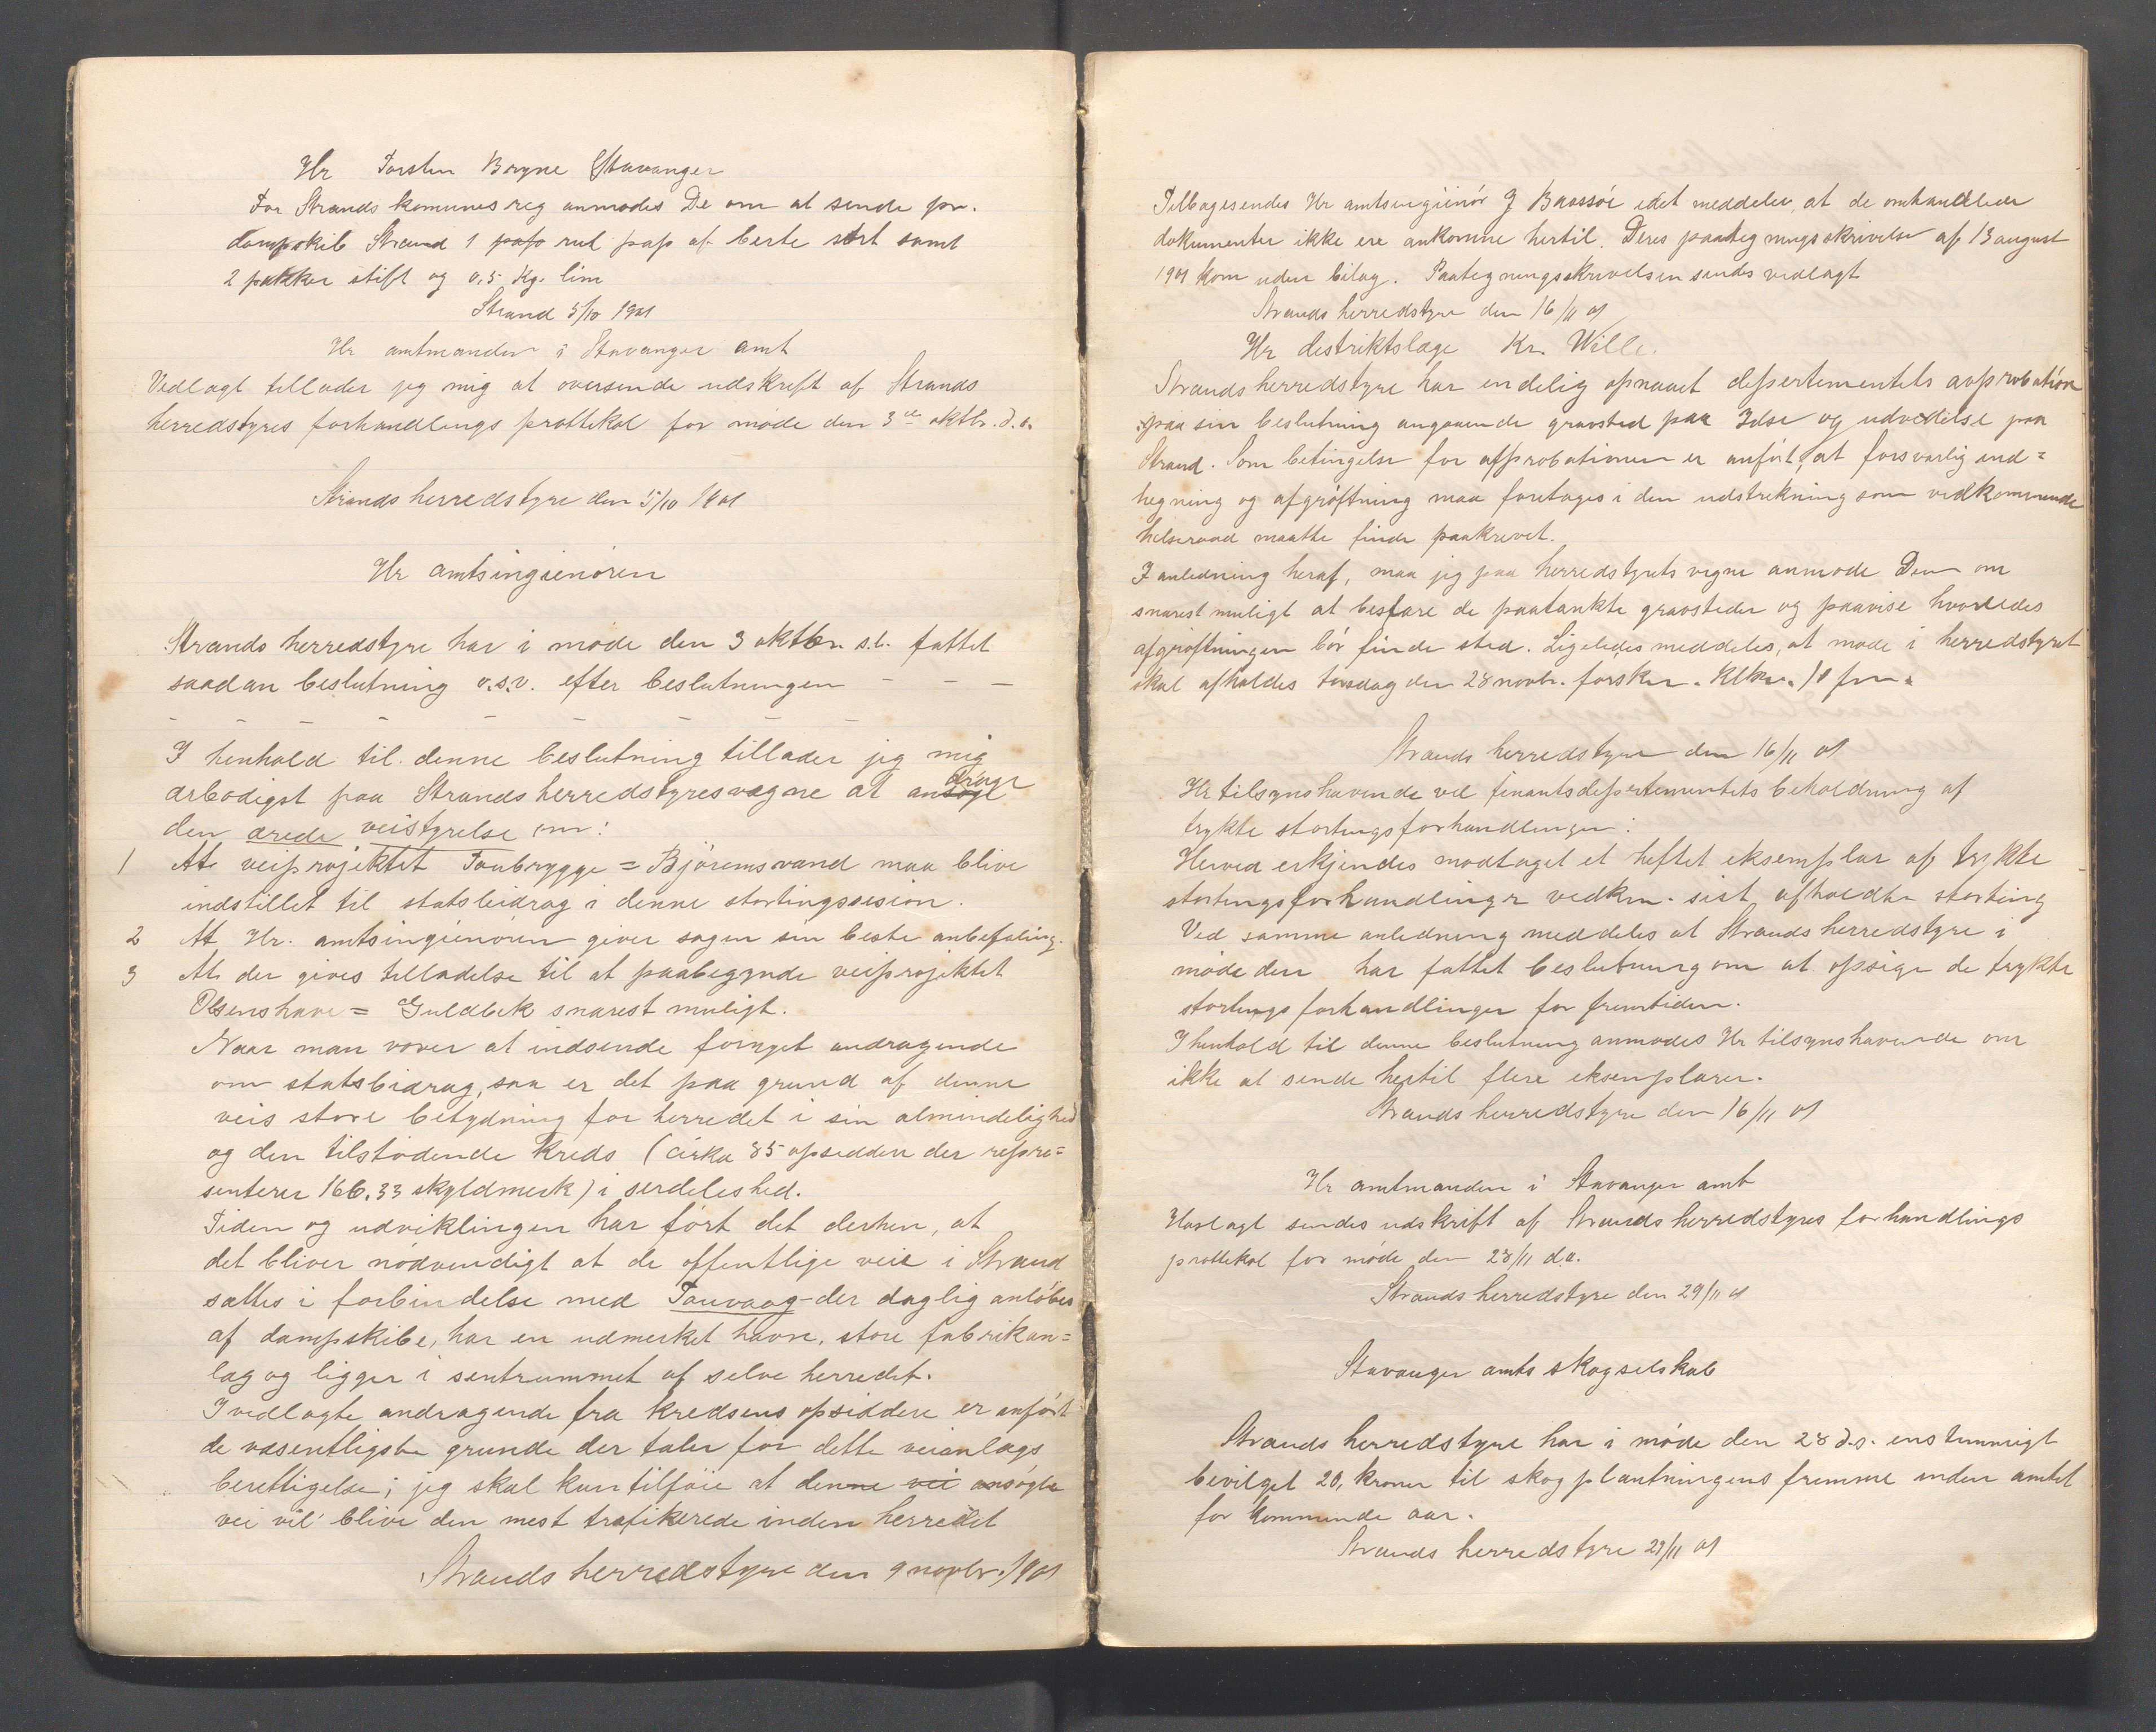 Hr Torsten Bryne Stavanger
For Strands komunes reg anmodes De om at sende pr.
dampskib Strand 1 papo rul pap af beste sort samt
2 pakker stift og 0,5 Kg. lim
Strand 5/10 1901
Hr amtmanden i Stavanger amt
Vedlagt tillader jeg mig at oversende udskrift af Strands
herredstyres forhandlings prottekol for møde den 3die oktbr. d.a.
Strands herredstyre den 5/10 1901
Hr amtsingieniøren
Strands herredstyre har i møde den 3 oktbr. s.l. fattet
saadan beslutning o.s.v. efter beslutningen – – –
– – – – – – –
I henhold til denne beslutning tillader jeg mig
ærbødigst paa Strands herredstyres vægne at ansøge drage
den ærede veistyrelse om:
1 At veiprojektet Taubrygge = Bjøremsvand maa blive
indstillet til statsbidrag i denne stortingssesion.
2 At Hr. amtsingieniøren giver sagen sin beste anbefaling.
3 At der gives tilladelse til at paabegynde veiprojektet
Olsenshave = Guldbek snarest muligt.
Naar man vover at indsende fornyet andragende
om statsbidrag, saa er det paa grund af denne
veis store betydning for herredet i sin almindelighed
og den tilstødende kreds (cirka 85 opsiddere der repre=
senterer 166,33 skyldmerk) i serdeleshed.
Tiden og udviklingen har ført det derhen, at
det bliver nødvendigt at de offentlige veie i Strand
sættes i forbindelse med Tauvaag – der daglig anløbes
af dampskibe, har en udmerket havn, store fabrikan=
læg og ligger i sentrummet af selve herredet.
I vedlagte andragende fra kredsens opsiddere er anført
de væsentligste grunde der taler for dette veianlægs
berettigelse; jeg skal kun tilføie at denne vei ansøgte
vei vil blive den mest trafikerede inden herredet
Strands herredstyre den 9 novbr. 1901
Tilbagesendes Hr amtsingieniør J Baassøe idet meddeles, at de omhandlede
dokumenter ikke ere ankomne hertil. Deres paategningsskrivelse af 13 august
1901 kom uden bilag. Paategningsskrivelsen sendes vedlagt
Strands herredstyre den 16/11 01
Hr destriktslæge Kr. Wille.
Strands herredstyre har endelig opnaaet depertementets approbation
paa sin beslutning angaaende gravsted paa Idse og udvidelse paa
Strand. Som betingelse for approbationen er anført, at forsvarlig ind=
hegning og afgrøftning maa foretages i den udstrekning som vedkommende
helseraad maatte finde paakrevet.
I anledning heraf, maa jeg paa herredstyrets vegne anmode Dem om
snarest muligt at besfare de paatænkte gravsteder og paavise hvorledes
afgrøftningen bør finde sted. Ligeledes meddeles, at møde i herredstyret
skal afholdes torsdag den 28 novbr. førstk. Klkn. 10 fm.
Strands herredstyre den 16/11 01
Hr tilsynshavende ved finantsdepertementets beholdning af
trykte stortingsforhandlinger:
Herved erkjendes modtaget et heftet eksemplar af trykte
stortingsforhandlinger vedkm. sist afholdte storting
Ved samme anledning meddeles at Strands herredstyre i
møde den har fattet beslutning om at opsige de trykte
stortingsforhandlinger for fremtiden.
I henhold til denne beslutning anmodes Hr tilsynshavende om
ikke at sende hertil flere eksemplarer.
Strands herredstyre den 16/11 01
Hr amtmanden i Stavanger amt
Hoslagt sendes udskrift af Strands herredstyres forhandlings
prottekol for møde den 28/11 d.a.
Strands herredstyre den 29/11 01
Stavanger amts skogselskab
Strands herredstyre har i møde den 28 d.s. enstemmigt
bevilget 20, kroner til skogplantningens fremme inden amtet
for kommende aar.
Strands herredstyre 29/11 01